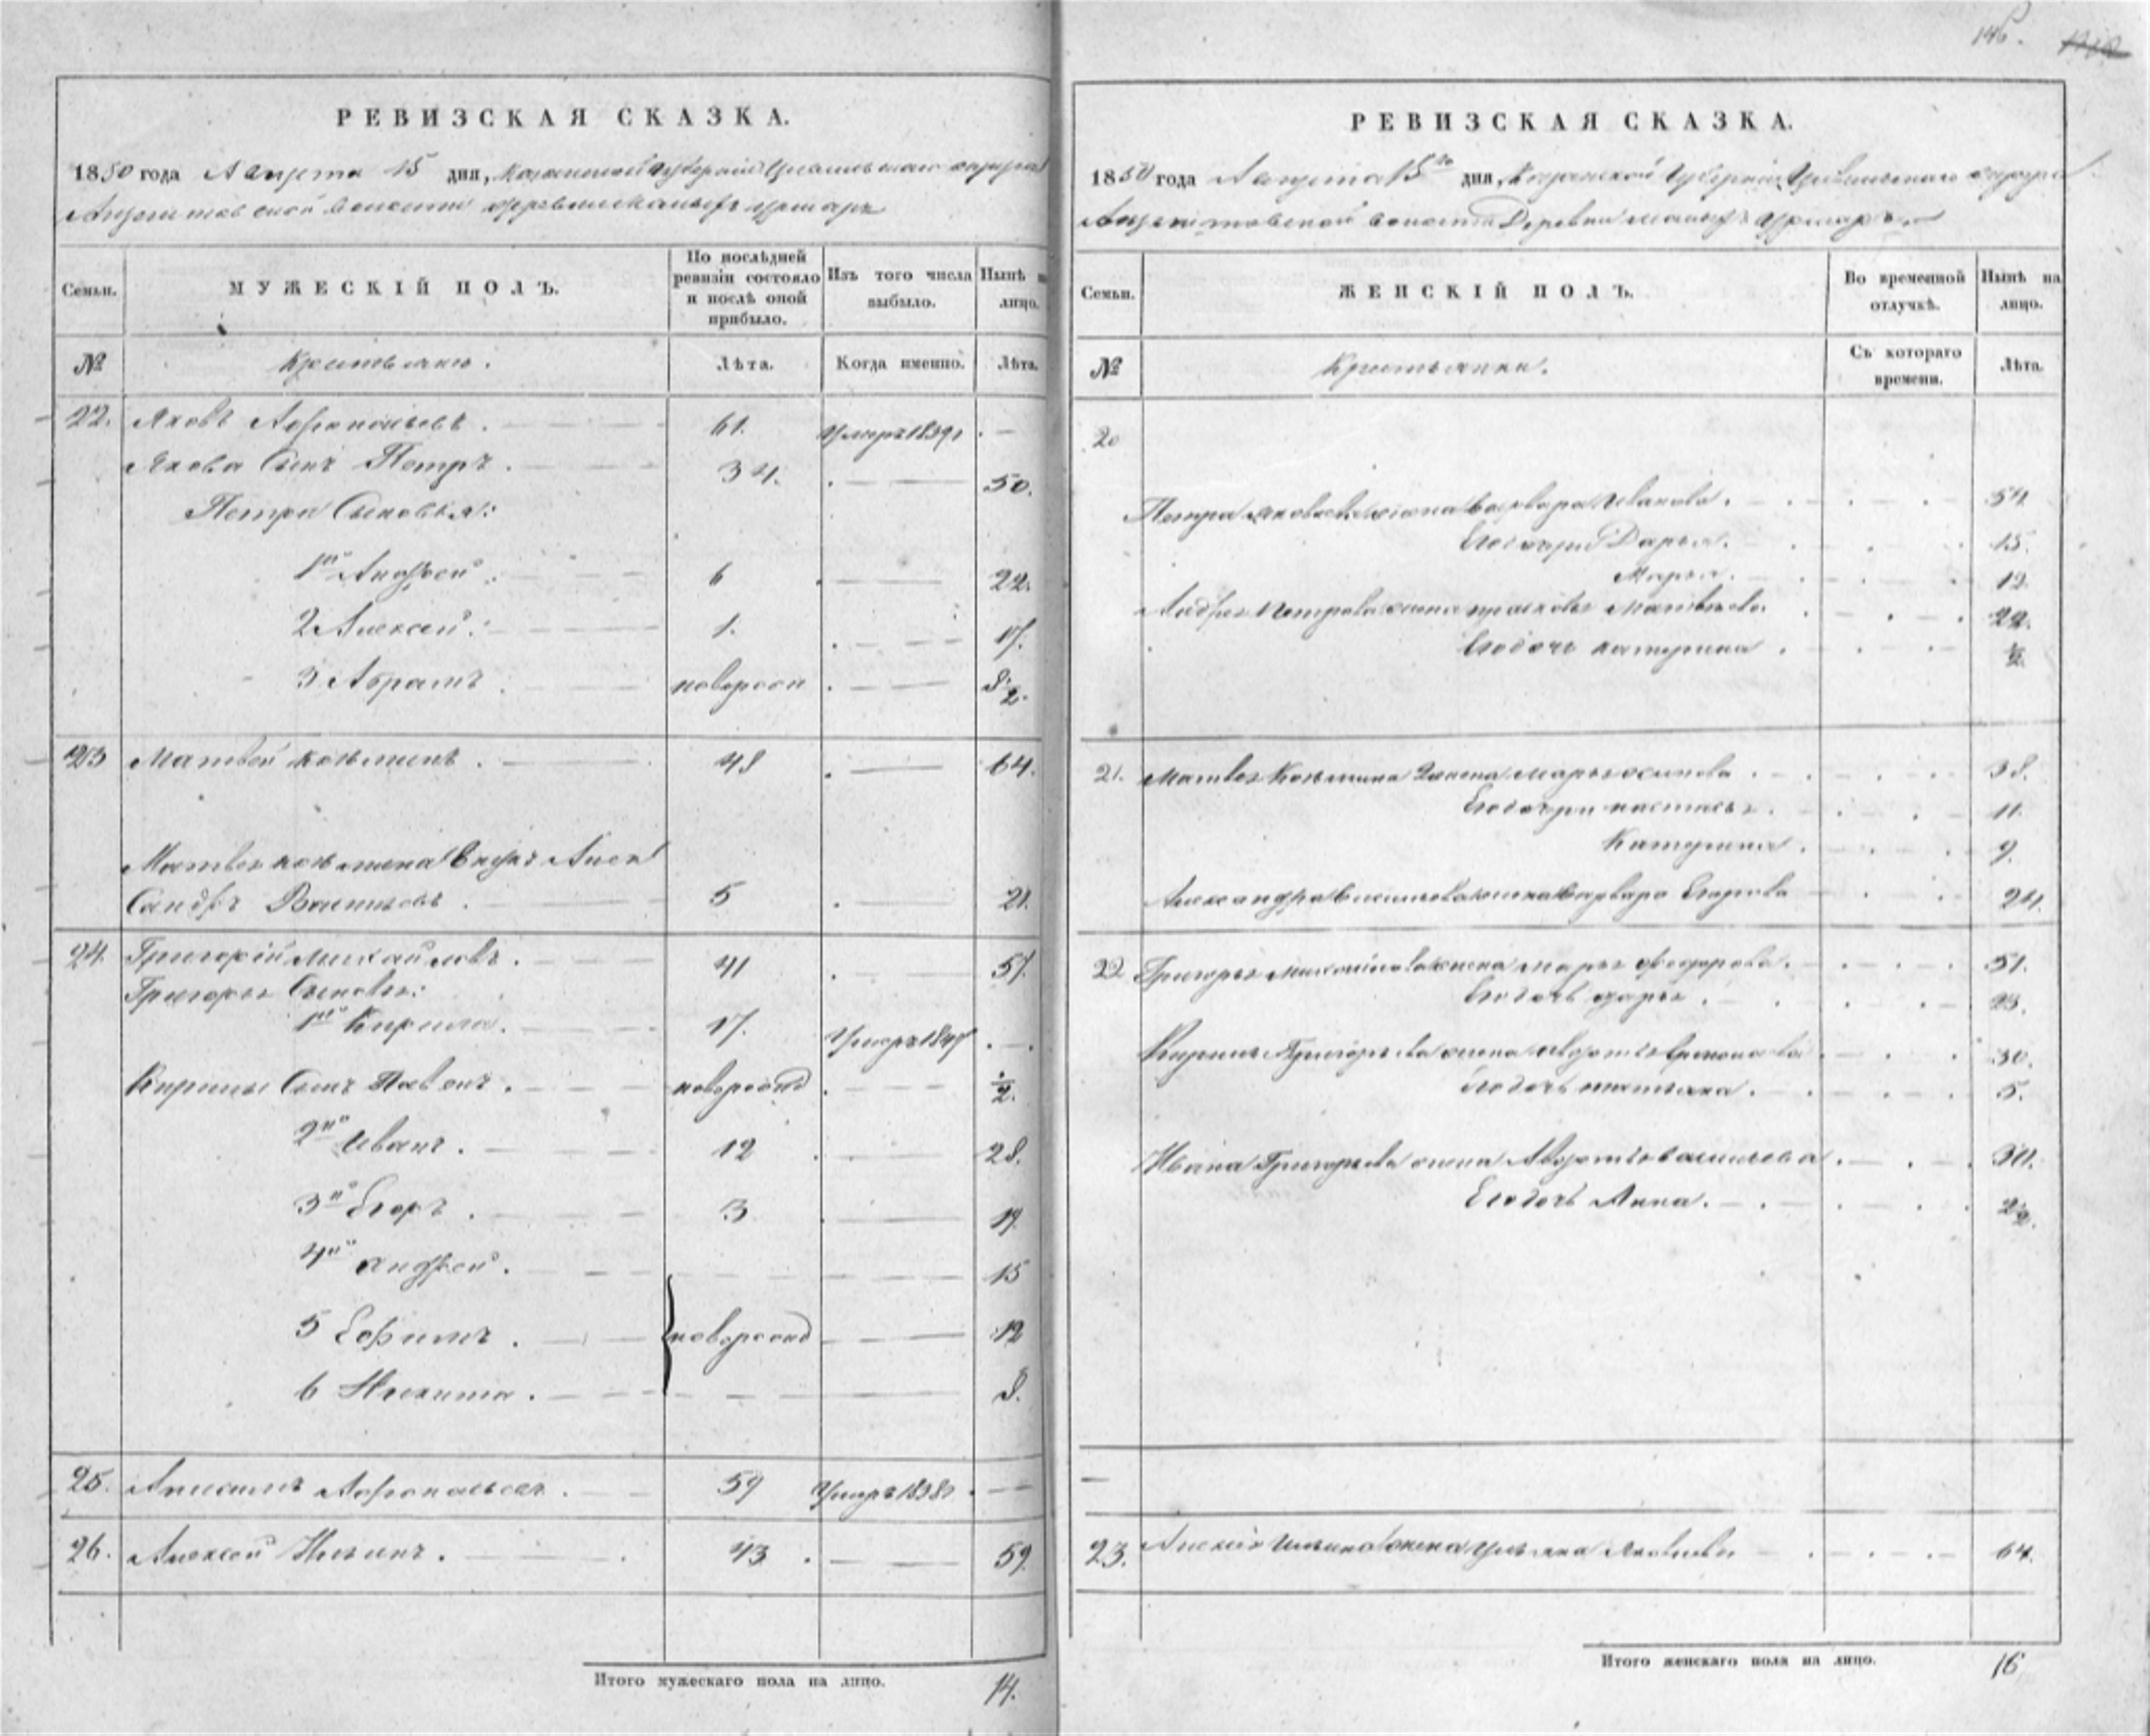 146.
РЕВИЗСКАЯ СКАЗКА.
1850 года Августа 15 дня, Казанской Губернии Цивильскаго округа
волости деревни Малыхъ Урмаръ
Семьи. МУЖЕСКІЙ ПОЛЪ. По послѣдней ревизіи состояло и послѣ оной прибыло. Изъ того числа выбыло. Нынѣ на лицо.
№ Крестьяне. Лѣта. Когда именно. Лѣта.
22. Яковъ Афонасьевъ. 61. Умеръ 1839 —
Якова Сынъ Петръ. 34. — 50.
Петра Сыновья:
1й Андрей. 6 — 22.
2 Алексей. 1. — 17.
3 Абрамъ. новорож — 8 1/2.
23 Матвей Козьминъ. 48 — 64.
Матвея Козьмина внукъ Алек
Сандръ Васильевъ. 5 — 21.
24. Григорій Михайловъ. 41 — 57.
Григорья Сыновья:
1й Кирила. 17. Умеръ 1847 —
Кирилы Сынъ Павелъ. новорожд — 1/2.
2й Иванъ. 12 — 28.
3й Егоръ. 3 — 19.
4й Андрей. — 15
5 Ефимъ. новорожд — 12
6 Никита. — 8.
25. Анисимъ Афонасьевъ. 59 Умеръ 1838 —
26. Алексей Ильинъ. 43 — 59.
Итого мужескаго пола на лицо. 14.
РЕВИЗСКАЯ СКАЗКА.
1850 года Августа 15го дня, Казанской Губерніи Цивильскаго округа
волости Деревни Малыхъ Урмаръ.
Семьи. ЖЕНСКІЙ ПОЛЪ. Во временной отлучкѣ. Нынѣ на лицо.
№ Крестьянки. Съ котораго времени. Лѣта.
20
Петра Яковлева жена Варвара Иванова. 54
Его дочери Дарья. 15.
Марья. 12.
Андрея Петрова жена Прасковья Матвеева 22.
Его дочь Катерина. 1/2
21. Матвея Козьмина жена Марья Осипова. 38.
Его дочери Настасья. 11.
Катерина. 9.
Александра Васильева жена Варвара Егорова 24.
22 Григорья Михайлова жена Марья Федорова. 51.
Его дочь Дарья. 23.
Кирилы Григорьева жена Авдотья 30.
Его дочь Татьяна. 5.
Ивана Григорьева жена Авдотья Васильева. 30.
Его дочь Анна. 2 1/2.
—
23. Алексея Ильина жена Ульяна Яковлева 64.
Итого женскаго пола на лицо. 16